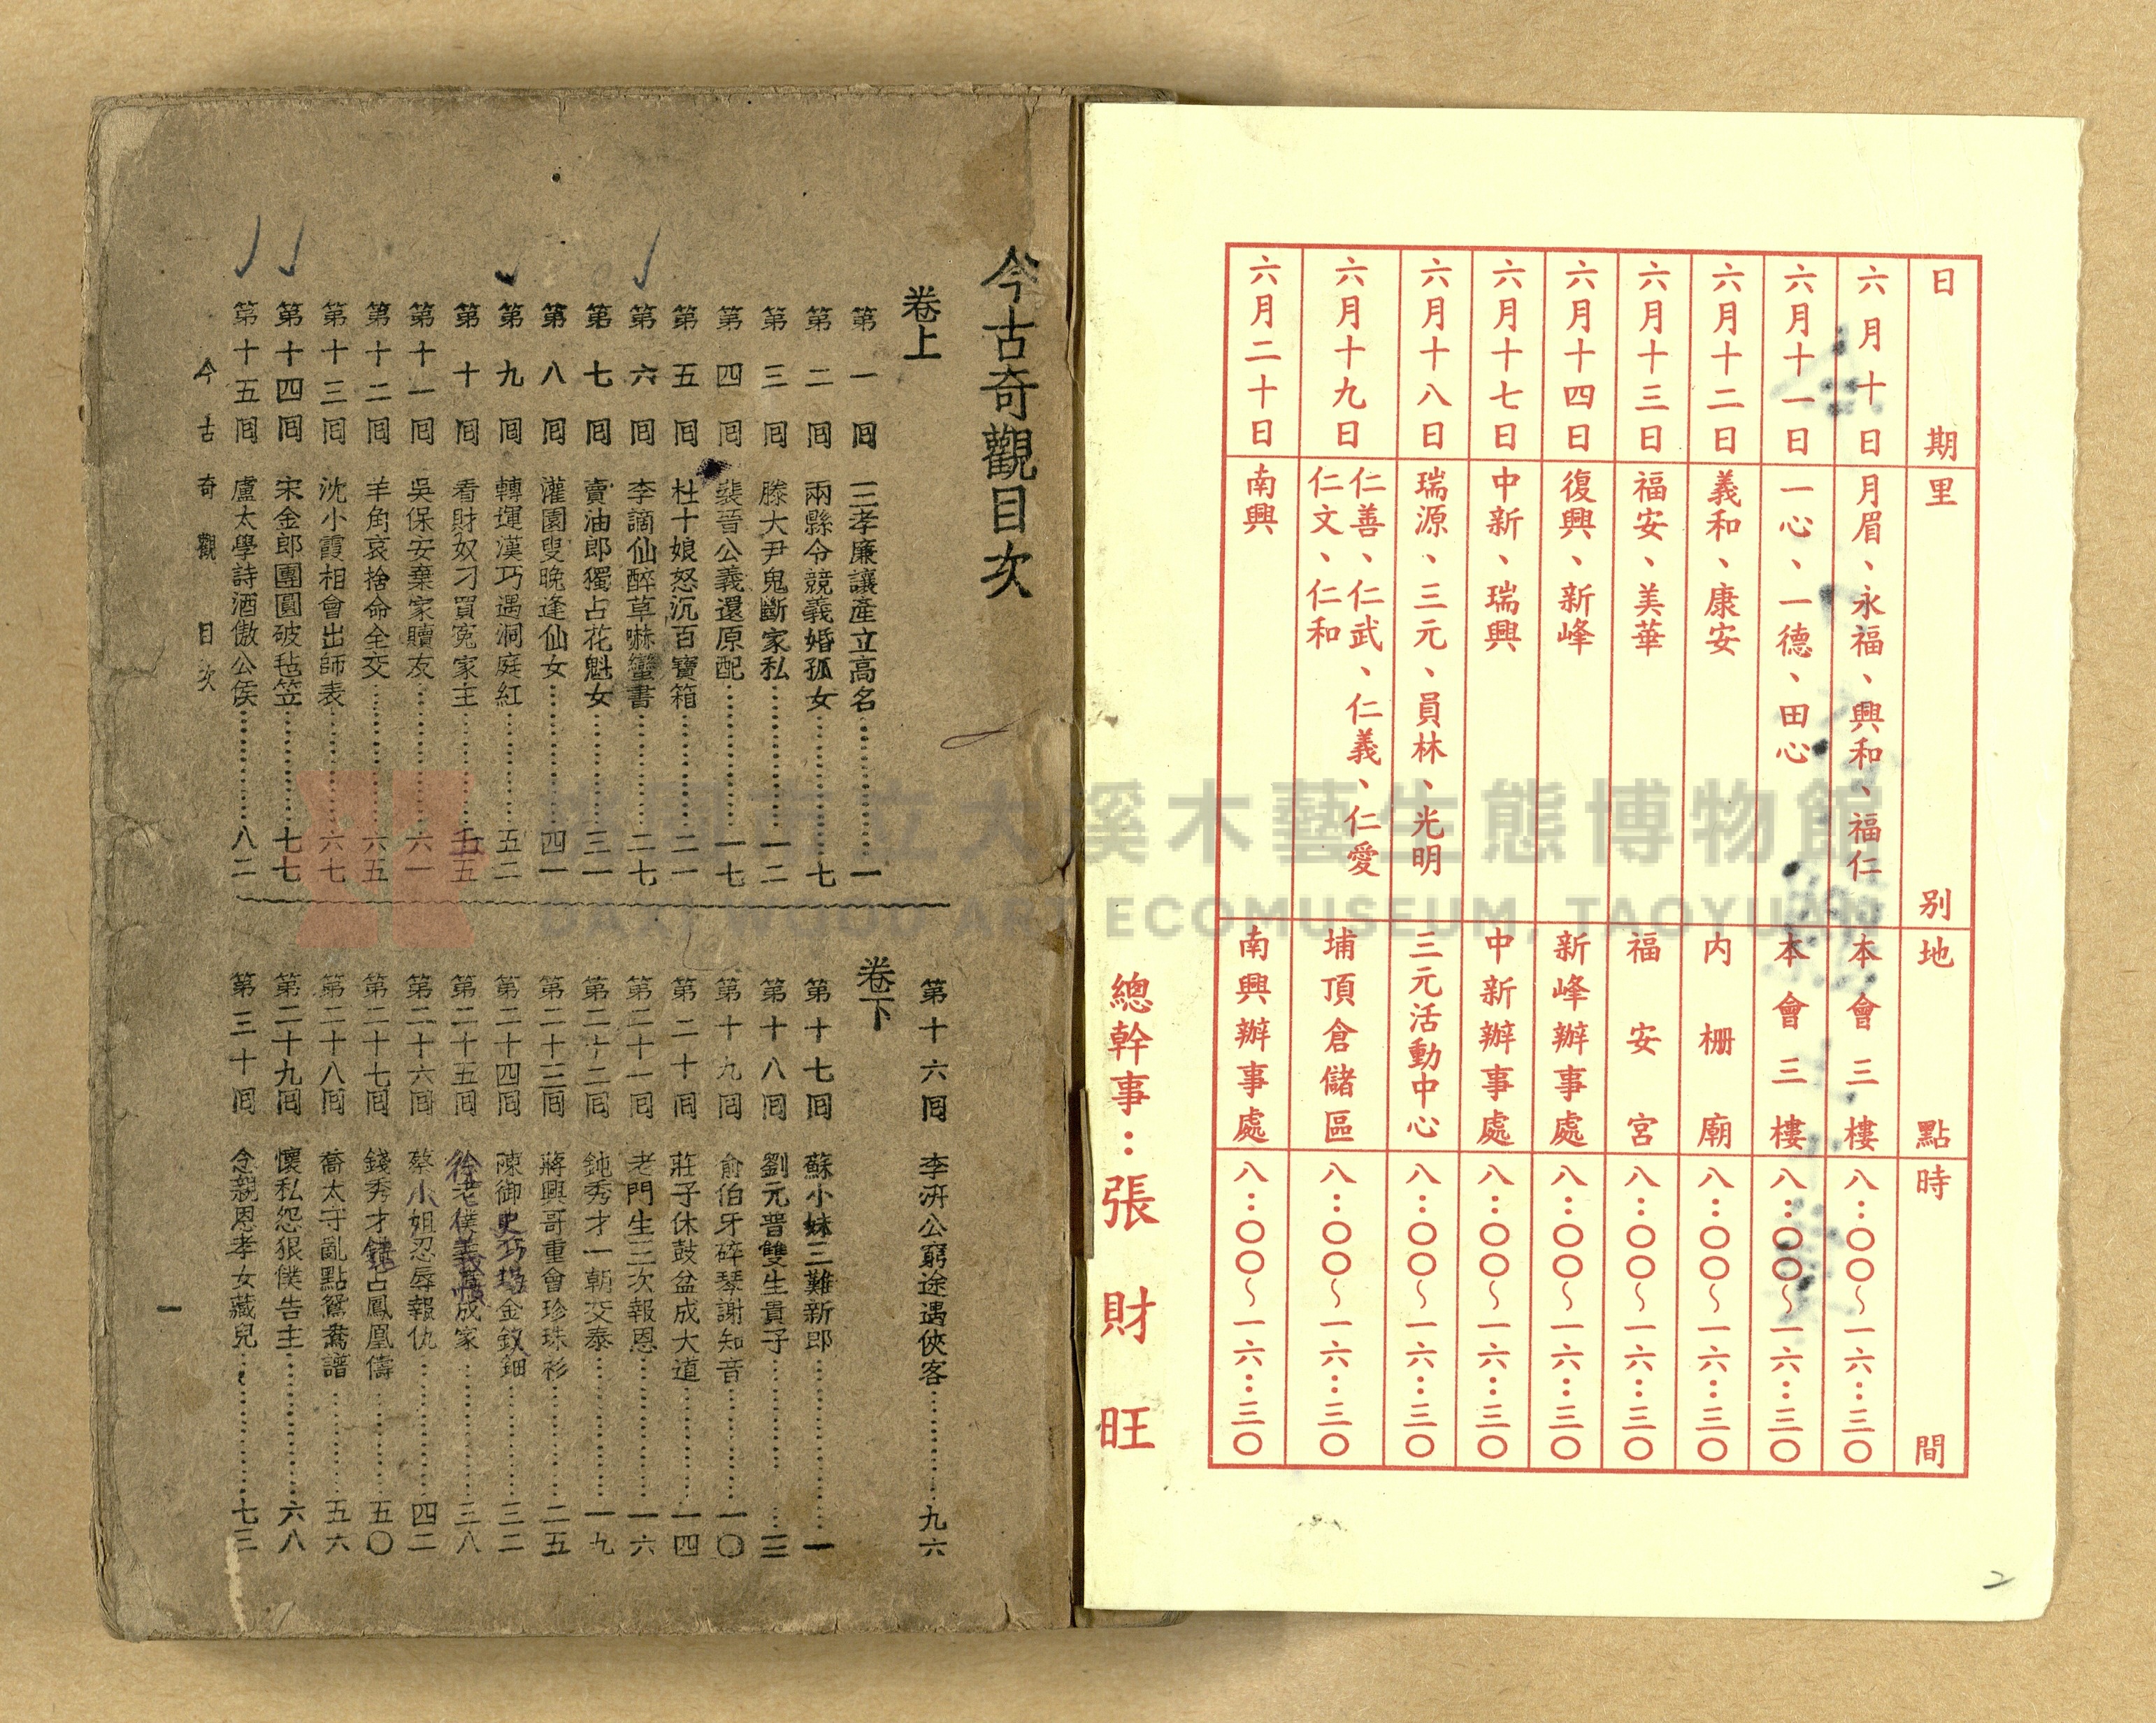 日期 里別 地點 時間
六月十日 月眉、永福、興和、福仁 本會三樓 八:〇〇~一六:三〇
六月十一日 一心、一德、田心 本會三樓 八:〇〇~一六:三〇
六月十二日 義和、康安 內柵廟 八:〇〇~一六:三〇
六月十三日 福安、美華 福安宮 八:〇〇~一六:三〇
六月十四日 復興、新峰 新峰辦事處 八:〇〇~一六:三〇
六月十七日 中新、瑞興 中新辦事處 八:〇〇~一六:三〇
六月十八日 瑞源、三元、員林、光明 三元活動中心 八:〇〇~一六:三〇
六月十九日 仁善、仁武、仁義、仁愛
仁文、仁和 埔頂倉儲區 八:〇〇~一六:三〇
六月二十日 南興 南興辦事處 八:〇〇~一六:三〇
總幹事:張財旺
2
今古奇觀目次
卷上
第一囘 三孝廉讓產立高名 一
第二囘 兩縣令競義婚孤女 七
第三囘 滕大尹鬼斷家私 一二
第四囘 裴晉公義還原配 一七
第五囘 杜十娘怒沉百寶箱 二一
第六囘 李謫仙醉草嚇蠻書 二七
第七囘 賣油郎獨占花魁女 三一
第八囘 灌園叟晚逢仙女 四一
第九囘 轉運漢巧遇洞庭紅 五二
第十囘 看財奴刁買冤家主 五五
第十一囘 吳保安棄家贖友 六一
第十二囘 羊角哀捨命全交 六五
第十三囘 沈小霞相會出師表 六七
第十四囘 宋金郎團圓破毡笠 七七
第十五囘 盧太學詩酒傲公侯 八二
第十六囘 李汧公窮途遇俠客 九六
卷下
第十七囘 蘇小妹三難新郎 一
第十八囘 劉元普雙生貴子 三
第十九囘 俞伯牙碎琴謝知音 一〇
第二十囘 莊子休鼓盆成大道 一四
第二十一囘 老門生三次報恩 一六
第二十二囘 鈍秀才一朝交泰 一九
第二十三囘 蔣興哥重會珍珠衫 二五
第二十四囘 陳御史巧勘金釵鈿 三二
第二十五囘 徐老僕義憤成家 三八
第二十六囘 蔡小姐忍辱報仇 四二
第二十七囘 錢秀才錯占鳳凰儔 五〇
第二十八囘 喬太守亂點鴛鴦譜 五六
第二十九囘 懷私怨狠僕告主 六八
第三十囘 念親恩孝女藏兒 七三
今古奇觀 目次
一
桃園市立大溪木藝生態博物館
DAXI WOOD ART ECOMUSEUM, TAOYUAN